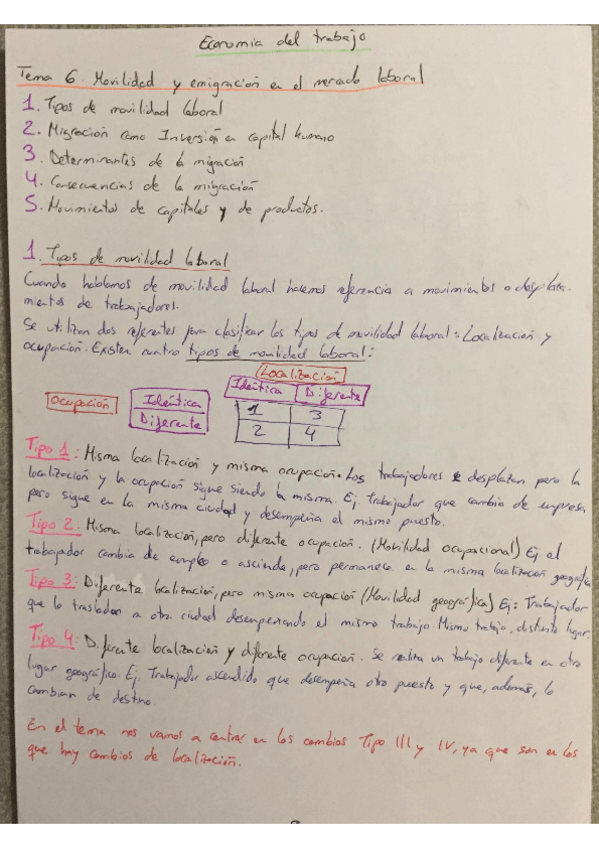 Economía del trabajo
Tema 6. Movilidad y emigración en el mercado laboral
1. Tipos de movilidad laboral
2. Migración como Inversión en capital humano
3. Determinantes de la migración
4. Consecuencias de la migración
5. Movimientos de capitales y de productos.
1. Tipos de movilidad laboral
Cuando hablamos de movilidad laboral hacemos referencia a movimientos o desplaza-
mientos de trabajadores.
Se utilizan dos referentes para clasificar los tipos de movilidad laboral: Localización y
ocupación. Existen cuatro tipos de movilidad laboral:
Localización
Idéntica Diferente
Ocupación Idéntica 1 3
Diferente 2 4
Tipo 1: Misma localización y misma ocupación. Los trabajadores se desplazan pero la
localización y la ocupación sigue siendo la misma. Ej. Trabajador que cambia de empresa
pero sigue en la misma ciudad y desempeña el mismo puesto.
Tipo 2: Misma localización, pero diferente ocupación. (Movilidad ocupacional) Ej. el
trabajador cambia de empleo o asciende, pero permanece en la misma localización geográfica
Tipo 3: Diferente localización, pero misma ocupación (Movilidad geográfica) Ej: Trabajador
que lo trasladan a otra ciudad desempeñando el mismo trabajo. Mismo trabajo, distinto lugar.
Tipo 4: Diferente localización y diferente ocupación. Se realiza un trabajo diferente en otro
lugar geográfico. Ej. Trabajador ascendido que desempeña otro puesto y que, además, lo
cambian de destino
En el tema nos vamos a centrar en los cambios Tipo III y IV, ya que son en los
que hay cambios de localización.